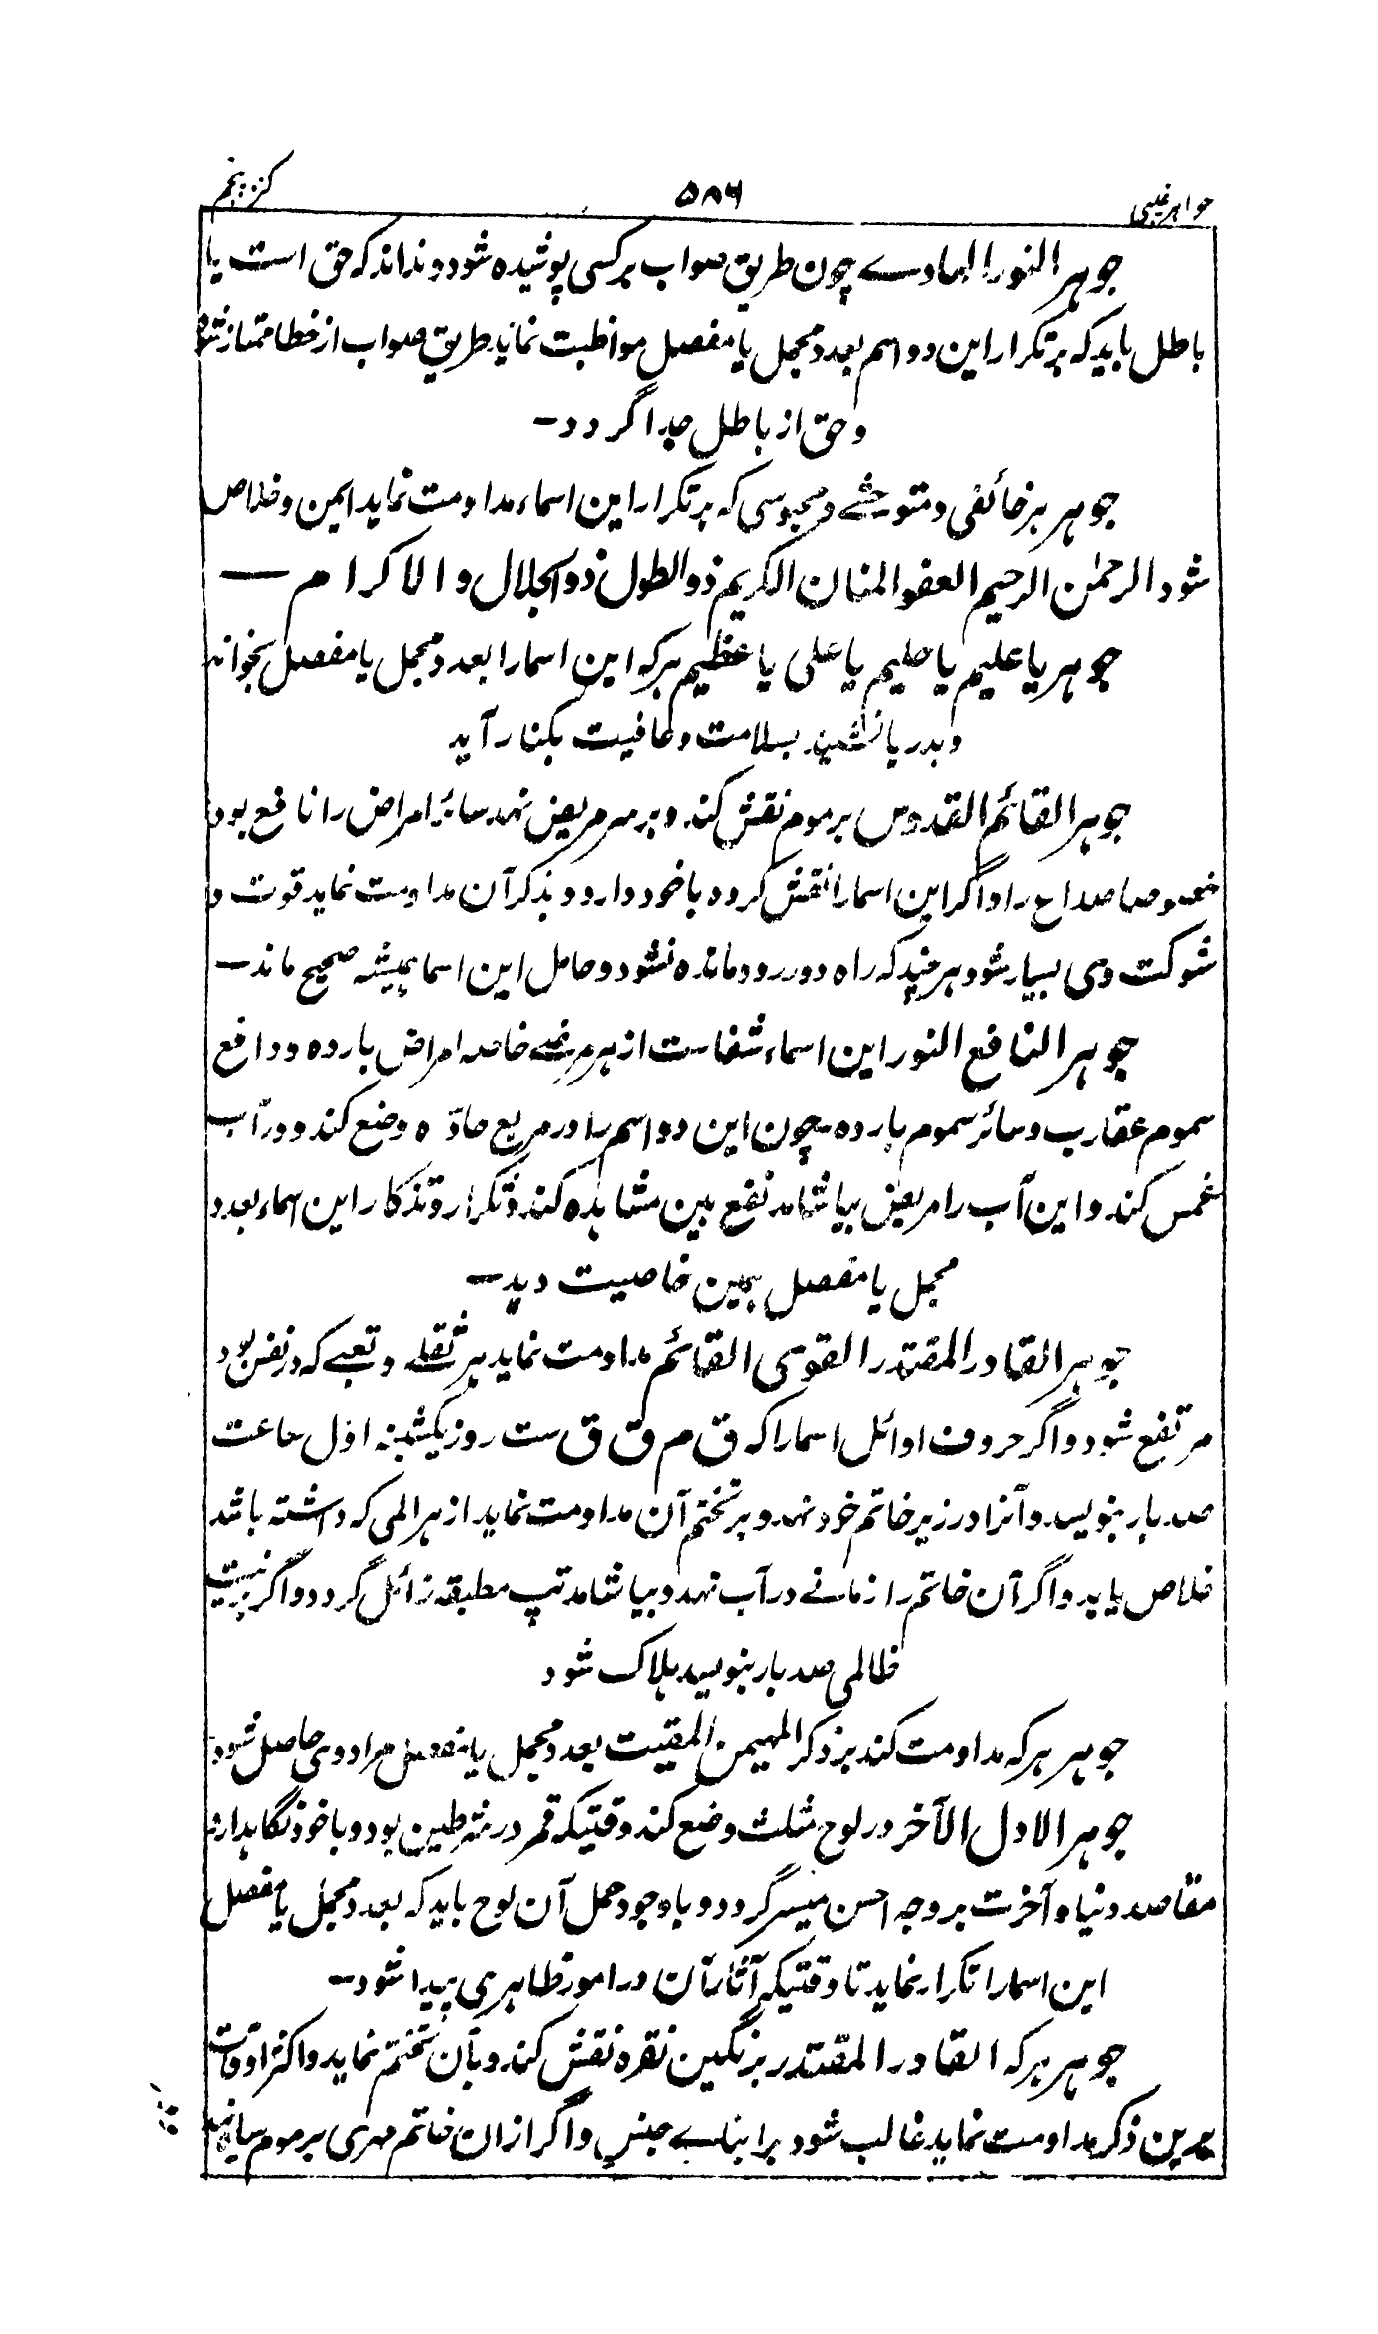 جواهر غیبی
۵۸۶
کنز پنجم
جوهر النور الهادے چون طریق صواب برکسی پوشیده شود و نداند که حق است یا
باطل باید که بر تکرار این دو اسم بعدد مجمل یا مفصل مواظبت نماید طریق صواب از خطا ممتاز شود
و حق از باطل جدا گردد۔
جوهر هر خائفی و متوحشے و محبوسی که بر تکرار این اسماء مداومت نماید ایمن و خلاص
شود الرحمٰن الرحیم العفو المنان الکریم ذو الطول ذو الجلال و الاکرام ــ
جوهر یا علیم یا حلیم یا علی یا عظیم هرکه این اسما را بعدد مجمل یا مفصل بخواند
و بدریا نشیند بسلامت و عافیت بکنار آید
جوهر القائم القدوس بر موم نقش کند و بر سر مریض نهد سائر امراض را نافع بود
خصوصا صداع را و اگر این اسما را نقش کرده باخود دارد و بذکر آن مداومت نماید قوت و
شوکت وی بسیار شود هرچند که راه دور رود مانده نشود و حامل این اسما همیشه صحیح ماند۔
جوهر النافع النور این اسماء شفاست از هر مرضے خاصه امراض بارده و دافع
سموم عقارب و سائر سموم بارده چون این دو اسم را در مربع حادّه وضع کند و در آب
غمس کند و این آب را مریض بیاشامد نفع بین مشاهده کند و تکرار و تذکار این اسماء بعدد
مجمل یا مفصل همین خاصیت دهد۔
جوهر القادر المقتدر القوی القائم مداومت نماید هر ثقلے و تعبے که در نفس بود
مرتفع شود و اگر حروف اوائل اسما را که ق م ق ق ست روز یکشنبه اول ساعت
صد بار بنویسد و آنرا در زیر خاتم خود نهد و بر تختم آن مداومت نماید از هر المی که داشته باشد
خلاص یابد و اگر آن خاتم را زمانے در آب نهد و بیاشامد تپ مطبقه زائل گردد و اگر به نیت
ظالمی صد بار بنویسد هلاک شود
جوهر هرکه مداومت کند بر ذکر المهیمن المقیت بعدد مجمل یا مفصل مراد وی حاصل شود
جوهر الاول الآخر در لوح مثلث وضع کند وقتیکه قمر در شرطین بود و باخود نگاهدارد
مقاصد دنیا و آخرت بر وجه احسن میسر گردد و باوجود حمل آن لوح باید که بعدد مجمل یا مفصل
این اسما را تکرار نماید تا وقتیکه آثار آن در امور ظاهری پیدا شود۔
جوهر هرکه القادر المقتدر بر نگین نقره نقش کند و بآن تختم نماید و اکثر اوقات
برین ذکر مداومت نماید غالب شود بر ابناے جنس و اگر ازان خاتم مهری بر موم